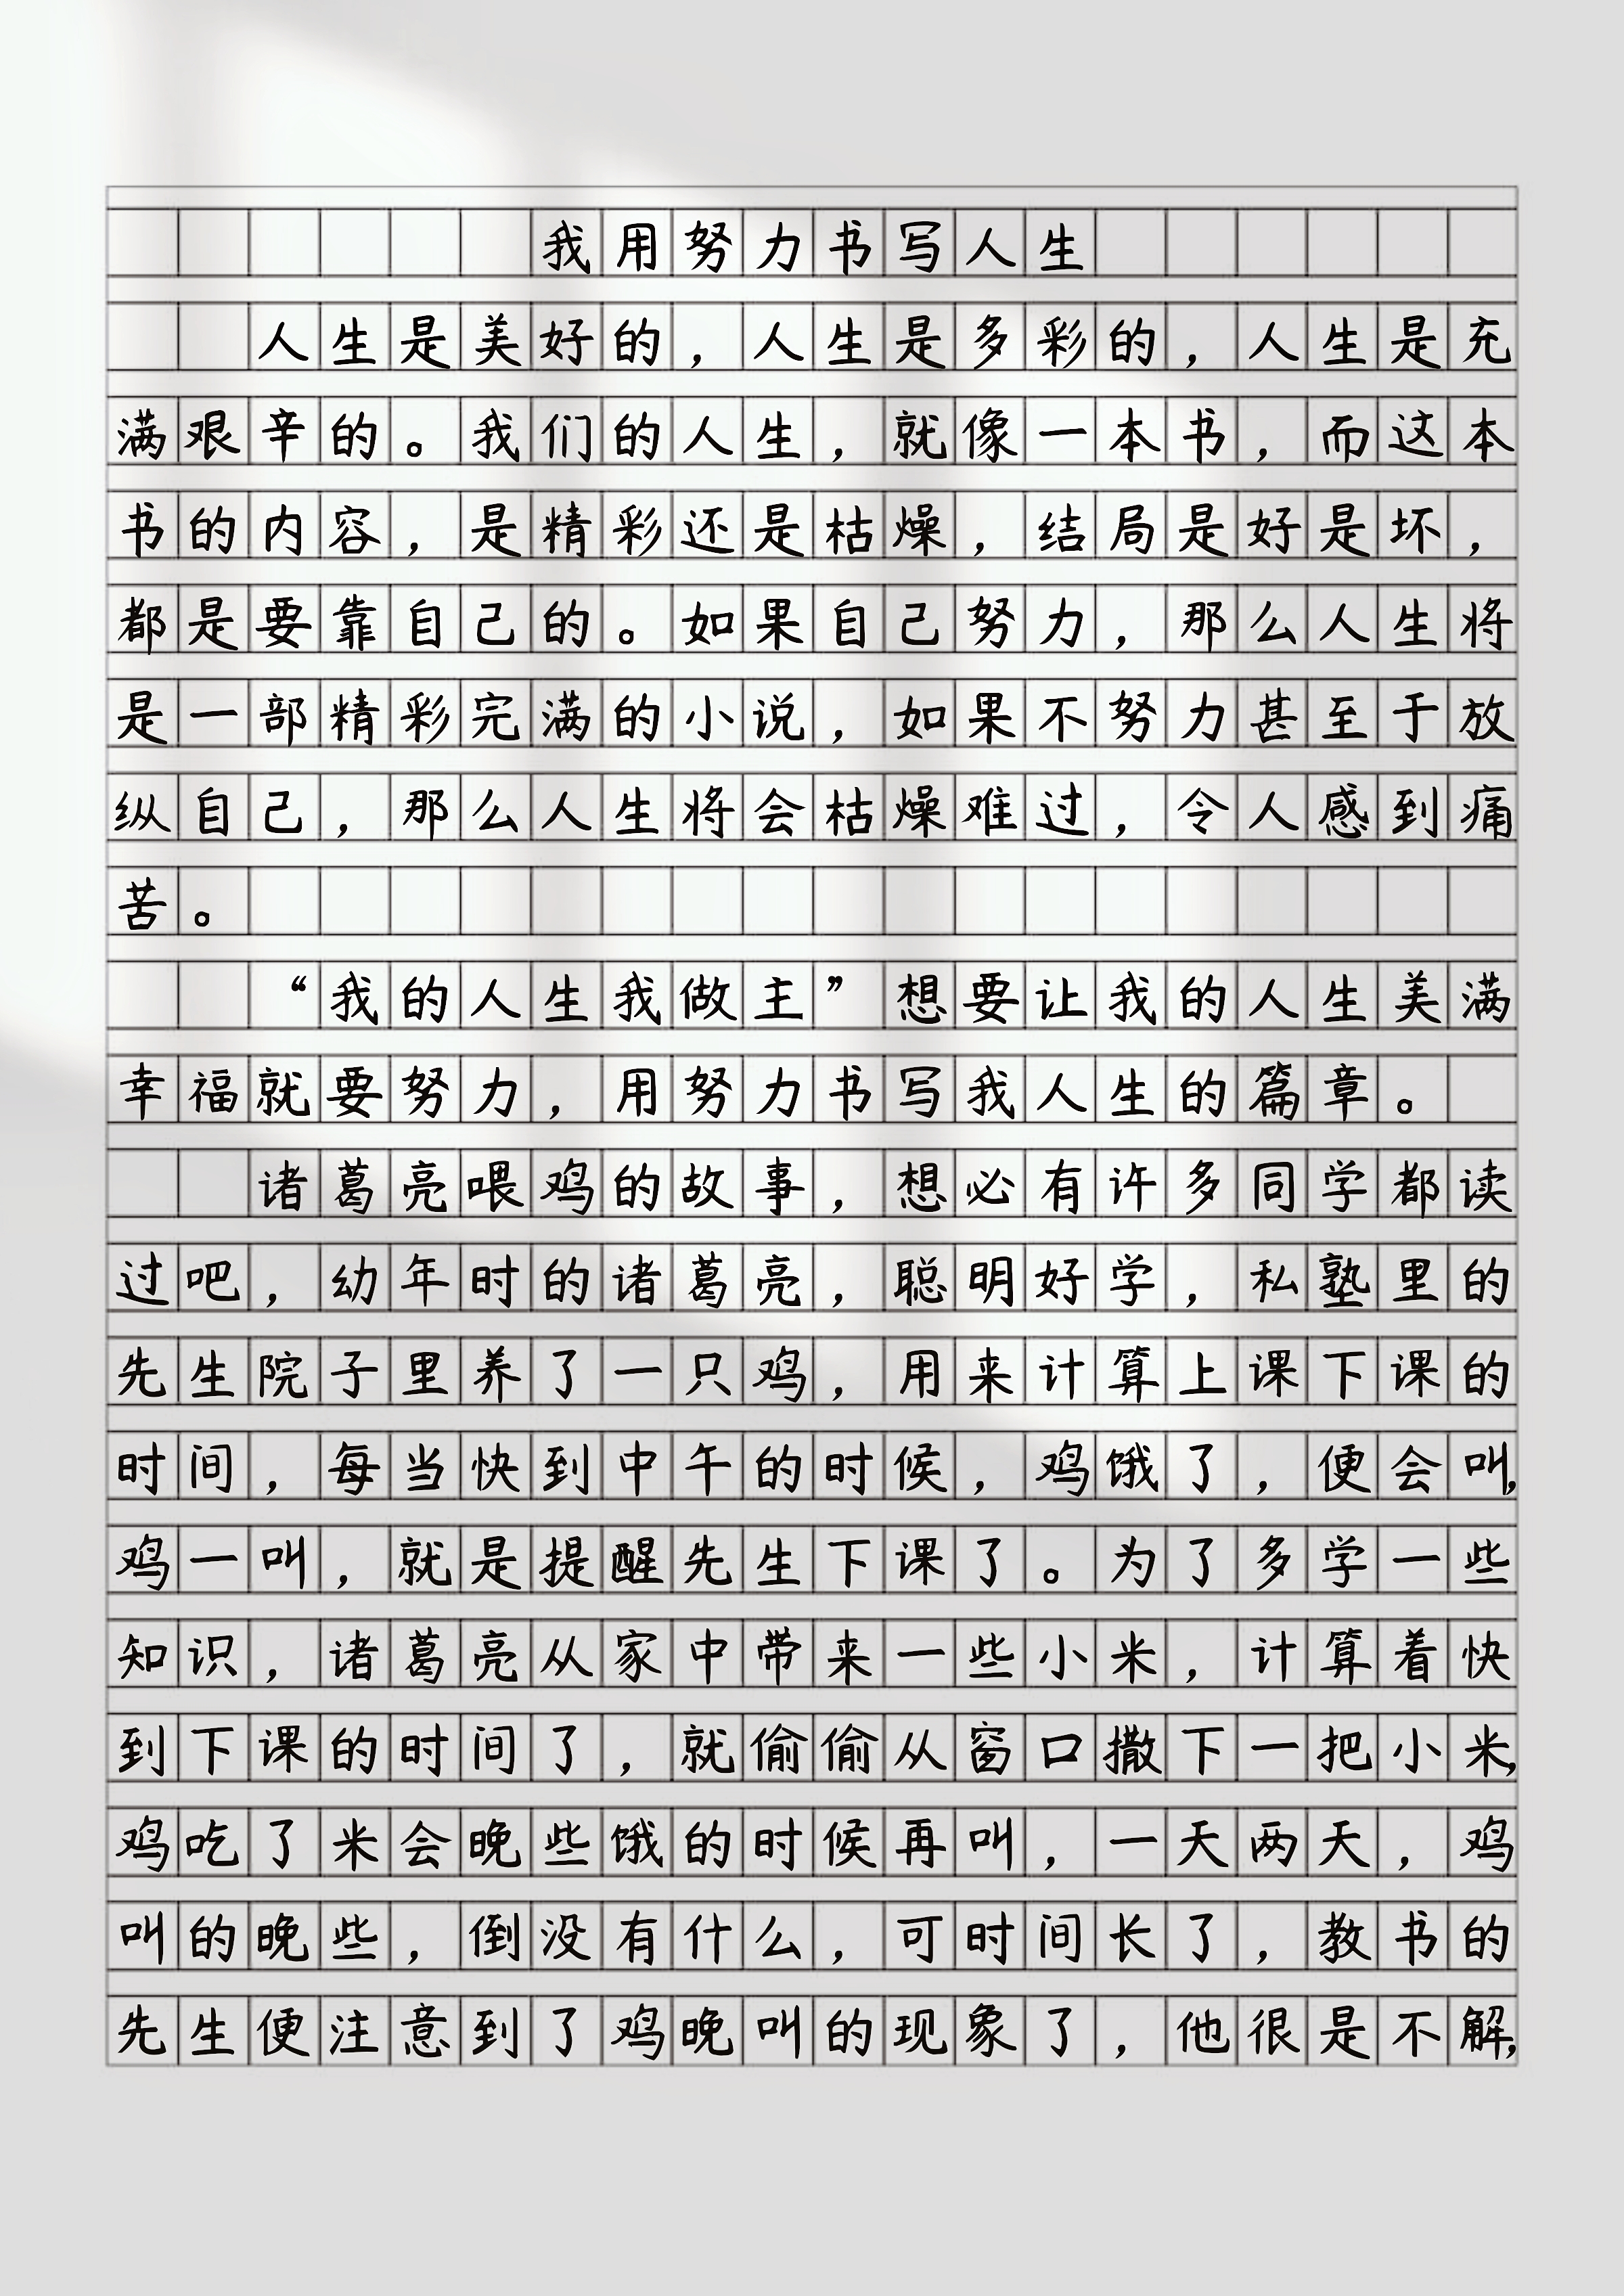 我用努力书写人生
人生是美好的，人生是多彩的，人生是充
满艰辛的。我们的人生，就像一本书，而这本
书的内容，是精彩还是枯燥，结局是好是坏，
都是要靠自己的。如果自己努力，那么人生将
是一部精彩完满的小说，如果不努力甚至于放
纵自己，那么人生将会枯燥难过，令人感到痛
苦。
“我的人生我做主”想要让我的人生美满
幸福就要努力，用努力书写我人生的篇章。
诸葛亮喂鸡的故事，想必有许多同学都读
过吧，幼年时的诸葛亮，聪明好学，私塾里的
先生院子里养了一只鸡，用来计算上课下课的
时间，每当快到中午的时候，鸡饿了，便会叫，
鸡一叫，就是提醒先生下课了。为了多学一些
知识，诸葛亮从家中带来一些小米，计算着快
到下课的时间了，就偷偷从窗口撒下一把小米，
鸡吃了米会晚些饿的时候再叫，一天两天，鸡
叫的晚些，倒没有什么，可时间长了，教书的
先生便注意到了鸡晚叫的现象了，他很是不解，